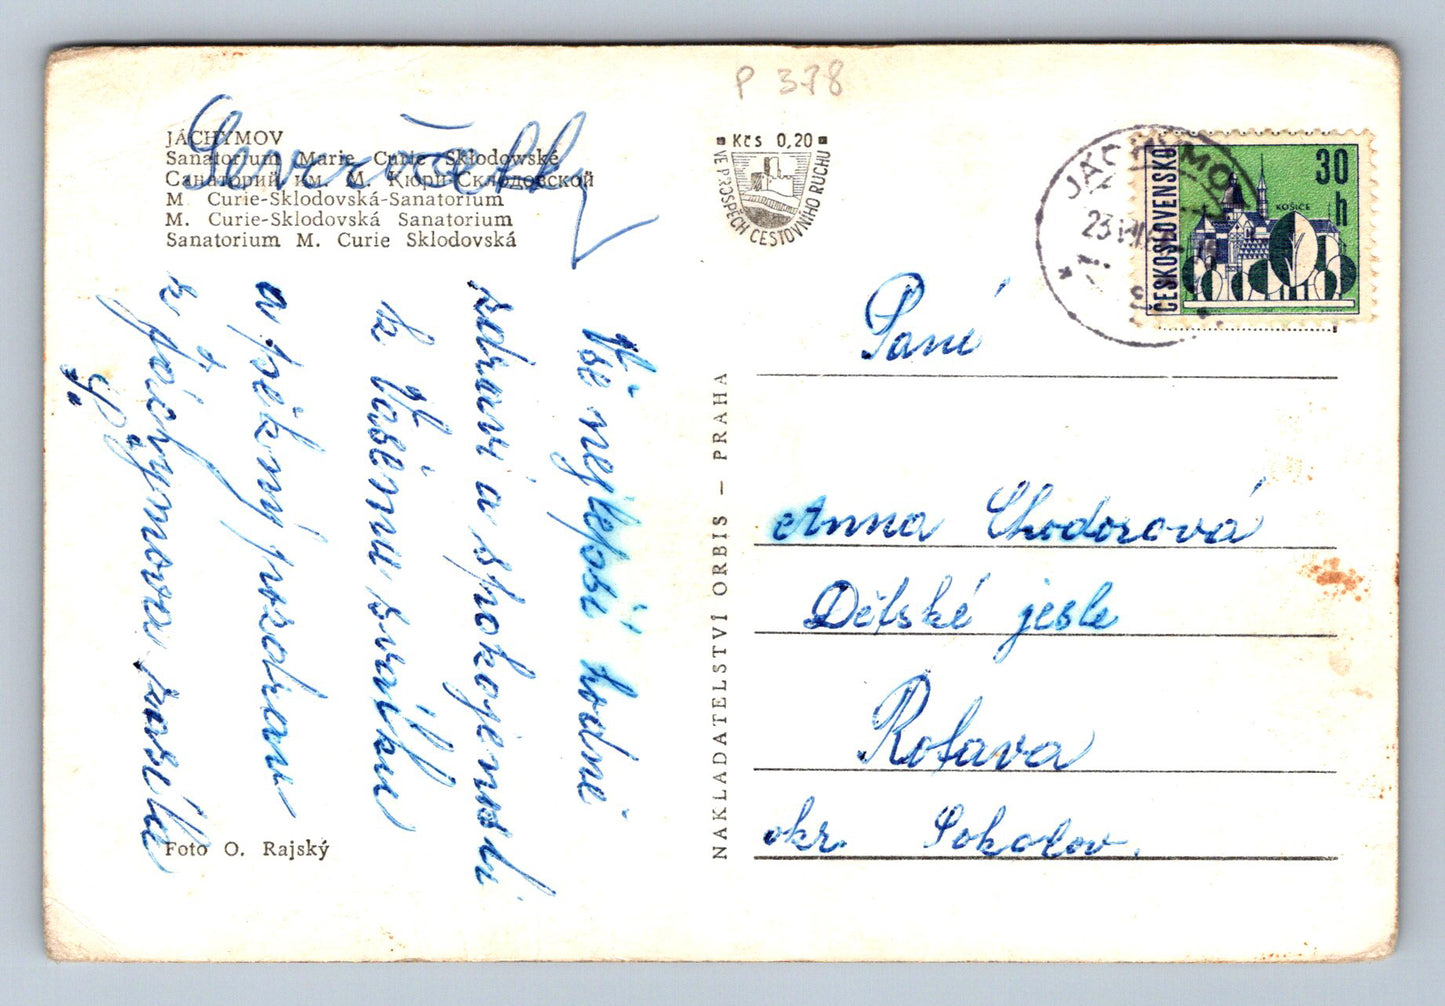 P 378
JÁCHYMOV
Sanatorium Marie Curie Skłodowské
Санаторий им. М. Кюри-Склодовской
M Curie-Sklodovská-Sanatorium
M. Curie-Sklodovská Sanatorium
Sanatorium M. Curie Sklodovská
Vše nejlepší hodně
zdraví a spokojenosti
k Vašemu svátku
a pěkný pozdrav
z Jáchymova zasílá
Foto O. Rajský
Kčs 0,20
VE PROSPĚCH CESTOVNÍHO RUCHU
NAKLADATELSTVÍ ORBIS – PRAHA
JÁCHYMOV
23.VII
ČESKOSLOVENSKO
30 h
KOŠICE
Paní
Anna Chodorová
Dětské jesle
Rotava
okr. Sokolov.